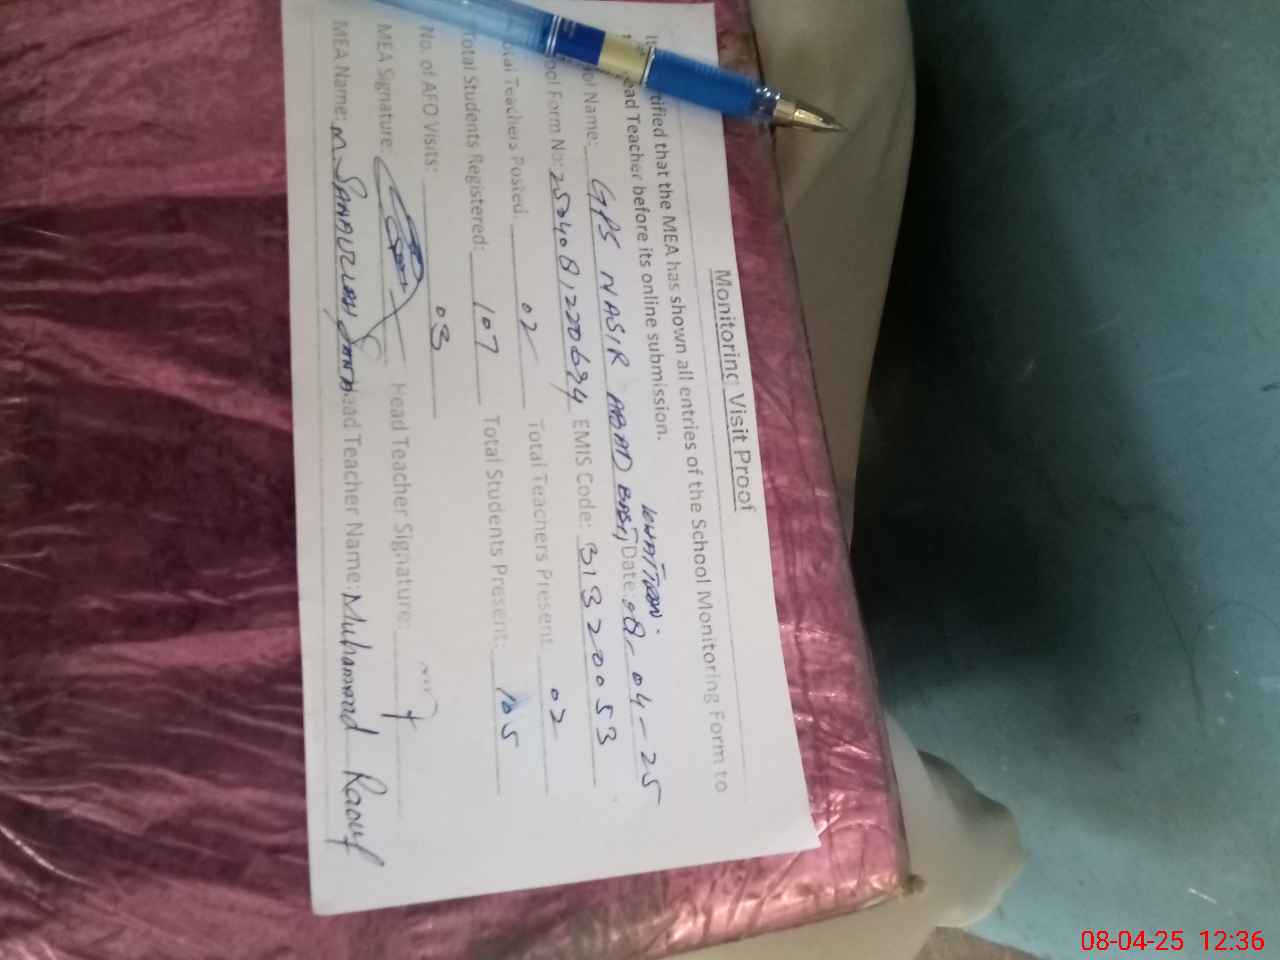 Monitoring Visit Proof
tified that the MEA has shown all entries of the School Monitoring Form to
ead Teacher before its online submission.
ol Name: GPS NASIR ABAD BASTI Date: 08-04-25
ool Form No: EMIS Code: 31320053
otal Teachers Posted: 02 Total Teachers Present: 02
Total Students Registered: 107 Total Students Present: 105
No. of AFO Visits: 03
MEA Signature: Head Teacher Signature:
MEA Name: M. SANAULLAH Head Teacher Name: Muhammad Raouf
08-04-25 12:36